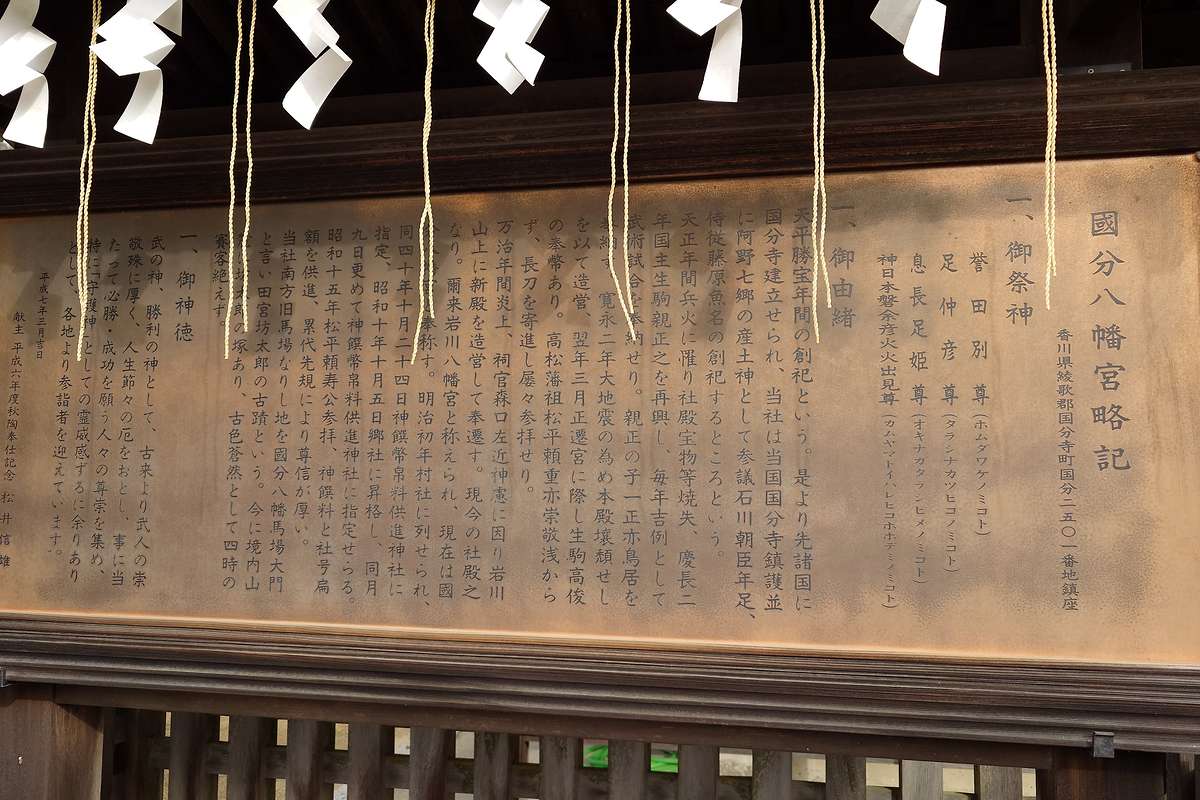 國分八幡宮略記
香川県綾歌郡国分寺町国分二五〇一番地鎮座
一、御祭神
誉田別尊（ホムダワケノミコト）
足仲彦尊（タラシナカツヒコノミコト）
息長足姫尊（オキナカタラシヒメノミコト）
神日本磐余彦火火出見尊（カムヤマトイハレヒコホホデミノミコト）
一、御由緒
天平勝宝年間の創祀という。是より先諸国に
国分寺建立せられ、当社は当国国分寺鎮護並
に阿野七郷の産土神として参議石川朝臣年足、
侍従藤原魚名の創祀するところという。
天正年間兵火に罹り社殿宝物等焼失、慶長二
年国主生駒親正之を再興し、毎年吉例として
武術試合を奉納せり。親正の子一正亦鳥居を
奉納す。寛永二年大地震の為め本殿壊頽せし
を以て造営、翌年三月正遷宮に際し生駒高俊
の奉幣あり。高松藩祖松平頼重亦崇敬浅から
ず、長刀を寄進し屡々参拝せり。
万治年間炎上、祠官森口左近神憲に因り岩川
山上に新殿を造営して奉遷す。現今の社殿之
なり。爾来岩川八幡宮と称えられ、現在は國
奉称す。明治初年村社に列せられ、
同四十年十月二十四日神饌幣帛料供進神社に
指定、昭和十年十月十五日郷社に昇格し、同月
九日更めて神饌幣帛料供進神社に指定せらる。
昭和十五年松平頼寿公参拝、神饌料と社号扁
額を供進、累代先規により尊信が厚い。
当社南方旧馬場なりし地を國分八幡馬場大門
と言い田宮坊太郎の古蹟という。今に境内山
の塚あり、古色蒼然として四時の
賽客絶えず。
一、御神徳
武の神、勝利の神として、古来より武人の崇
敬殊に厚く、人生節々の厄をおとし、事に当
たって必勝・成功を願う人々の尊崇を集め、
特に「守護神」としての霊威感ずるに余りあり
として、各地より参詣者を迎えています。
平成七年三月吉日
献主 平成六年度秋陶奉仕記念 松井信雄